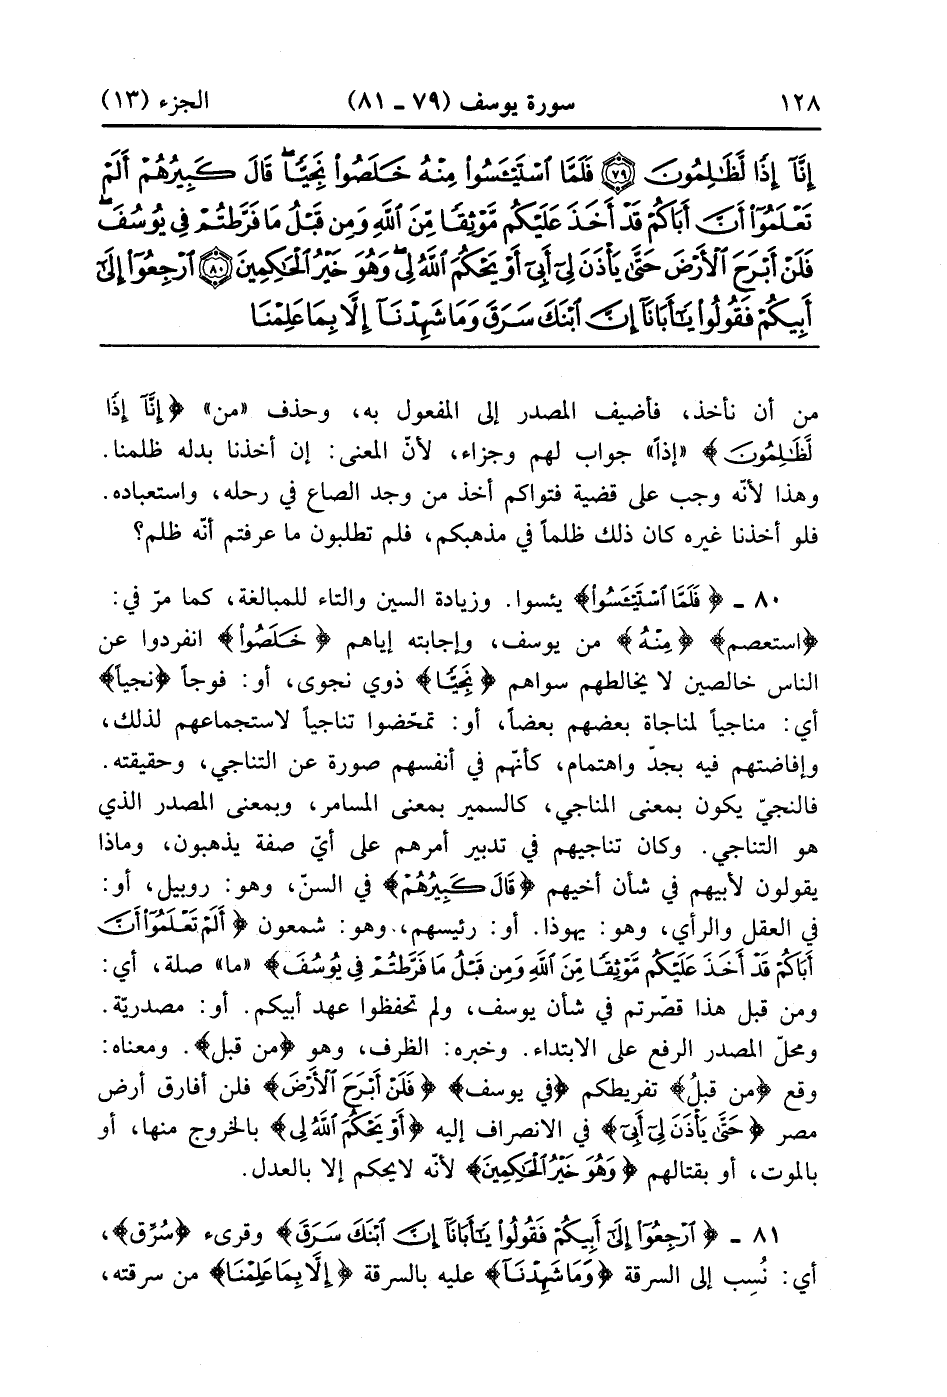 ١٢٨ سورة يوسف (٧٩ ـ ٨١) الجزء (١٣)
إِنَّآ إِذًا لَّظَٰلِمُونَ ﴿٧٩﴾ فَلَمَّا ٱسْتَيْـَٔسُوا۟ مِنْهُ خَلَصُوا۟ نَجِيًّا ۖ قَالَ كَبِيرُهُمْ أَلَمْ
تَعْلَمُوٓا۟ أَنَّ أَبَاكُمْ قَدْ أَخَذَ عَلَيْكُم مَّوْثِقًا مِّنَ ٱللَّهِ وَمِن قَبْلُ مَا فَرَّطتُمْ فِى يُوسُفَ ۖ
فَلَنْ أَبْرَحَ ٱلْأَرْضَ حَتَّىٰ يَأْذَنَ لِىٓ أَبِىٓ أَوْ يَحْكُمَ ٱللَّهُ لِى ۖ وَهُوَ خَيْرُ ٱلْحَٰكِمِينَ ﴿٨٠﴾ ٱرْجِعُوٓا۟ إِلَىٰٓ
أَبِيكُمْ فَقُولُوا۟ يَٰٓأَبَانَآ إِنَّ ٱبْنَكَ سَرَقَ وَمَا شَهِدْنَآ إِلَّا بِمَا عَلِمْنَا
من أن نأخذ، فأضيف المصدر إلى المفعول به، وحذف «من» ﴿إِنَّآ إِذًا
لَّظَٰلِمُونَ﴾ «إذاً» جواب لهم وجزاء، لأنّ المعنى: إن أخذنا بدله ظلمنا.
وهذا لأنّه وجب على قضية فتواكم أخذ من وجد الصاع في رحله، واستعباده.
فلو أخذنا غيره كان ذلك ظلماً في مذهبكم، فلم تطلبون ما عرفتم أنّه ظلم؟
٨٠ ـ ﴿فَلَمَّا ٱسْتَيْـَٔسُوا۟﴾ يئسوا. وزيادة السين والتاء للمبالغة، كما مرّ في:
﴿استعصم﴾ ﴿مِنْهُ﴾ من يوسف، وإجابته إياهم ﴿خَلَصُوا۟﴾ انفردوا عن
الناس خالصين لا يخالطهم سواهم ﴿نَجِيًّا﴾ ذوي نجوى، أو: فوجاً ﴿نجياً﴾
أي: مناجياً لمناجاة بعضهم بعضاً، أو: تمحّضوا تناجياً لاستجماعهم لذلك،
وإفاضتهم فيه بجدّ واهتمام، كأنهّم في أنفسهم صورة عن التناجي، وحقيقته.
فالنجيّ يكون بمعنى المناجي، كالسمير بمعنى المسامر، وبمعنى المصدر الذي
هو التناجي. وكان تناجيهم في تدبير أمرهم على أيّ صفة يذهبون، وماذا
يقولون لأبيهم في شأن أخيهم ﴿قَالَ كَبِيرُهُمْ﴾ في السنّ، وهو: روبيل، أو:
في العقل والرأي، وهو: يهوذا. أو: رئيسهم، وهو: شمعون ﴿أَلَمْ تَعْلَمُوٓا۟ أَنَّ
أَبَاكُمْ قَدْ أَخَذَ عَلَيْكُم مَّوْثِقًا مِّنَ ٱللَّهِ وَمِن قَبْلُ مَا فَرَّطتُمْ فِى يُوسُفَ﴾ «ما» صلة، أي:
ومن قبل هذا قصّرتم في شأن يوسف، ولم تحفظوا عهد أبيكم. أو: مصدريّة.
ومحلّ المصدر الرفع على الابتداء. وخبره: الظرف، وهو ﴿من قبل﴾. ومعناه:
وقع ﴿من قبلُ﴾ تفريطكم ﴿في يوسف﴾ ﴿فَلَنْ أَبْرَحَ ٱلْأَرْضَ﴾ فلن أفارق أرض
مصر ﴿حَتَّىٰ يَأْذَنَ لِىٓ أَبِىٓ﴾ في الانصراف إليه ﴿أَوْ يَحْكُمَ ٱللَّهُ لِى﴾ بالخروج منها، أو
بالموت، أو بقتالهم ﴿وَهُوَ خَيْرُ ٱلْحَٰكِمِينَ﴾ لأنّه لايحكم إلا بالعدل.
٨١ ـ ﴿ٱرْجِعُوٓا۟ إِلَىٰٓ أَبِيكُمْ فَقُولُوا۟ يَٰٓأَبَانَآ إِنَّ ٱبْنَكَ سَرَقَ﴾ وقرىء ﴿سُرِّق﴾،
أي: نُسِب إلى السرقة ﴿وَمَا شَهِدْنَآ﴾ عليه بالسرقة ﴿إِلَّا بِمَا عَلِمْنَا﴾ من سرقته،